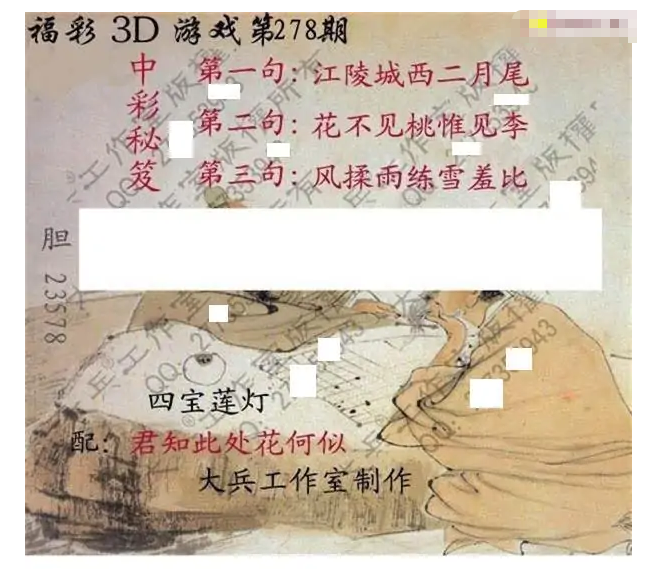 福彩 3D 游戏第278期
中彩秘笈
第一句：江陵城西二月尾
第二句：花不见桃惟见李
第三句：风揉雨练雪羞比
胆 23578
四宝莲灯
配：君知此处花何似
大兵工作室制作